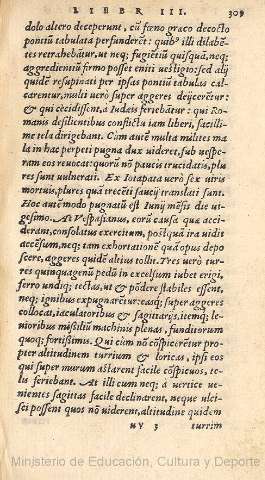 LIBER III. 309
dolo altero deceperunt, cũ fœno græco decocto
pontiũ tabulata perfunderẽt: quibꝰ illi dilabẽ-
tes retrahebãtur, ut neq; fugiẽtiũ quisquã, neq;
aggredientiũ firmo posset eniti uestigio: sed alij
quidẽ resupinati per ipsas pontiũ tabulas cal-
carentur, multi uerò super aggeres deijcerẽtur:
& qui cecidissent, à Iudæis feriebãtur: qui Ro-
manis desilientibus conflictu iam liberi, facilli-
me tela dirigebant. Cùm autẽ multa milites ma
la in hac perpeti pugna dux uideret, sub uespe-
ram eos reuocat: quorũ nõ paucis trucidatis, plu
res sunt uulnerati. Ex Iotapata uerò sex uiris
mortuis, plures quã trecẽti saucij translati sunt.
Hoc autẽ modo pugnatũ est Iunij mẽsis die ui-
gesimo. At Vespasianus, eorũ causa quæ acci-
derant, consolatus exercitum, postquã ira uidit
accẽsum, neq; tam exhortationẽ quã opus depo
scere, aggeres quidẽ altius tollit. Tres uerò tur-
res quinquagenũ pedũ in excelsum iubet erigi,
ferro undiq; tectas, ut & põdere stabiles essent,
neq; ignibus expugnarẽtur: easq; super aggeres
collocat, iaculatoribus & sagittarijs, itemq; le-
uioribus missiliũ machinis plenas, funditorum
quoq; fortissimis. Qui cùm nõ cõspicerẽtur pro-
pter altitudinem turrium & loricas, ipsi eos
qui super murum astarent facilè cõspicuos, te-
lis feriebant. At illi cum neq; à uertice ue-
nientes sagittas facilè declinarent, neque ulci-
sci possent quos nõ uiderent, altitudine quidem
uy 3 turrim
Ministerio de Educación, Cultura y Deporte